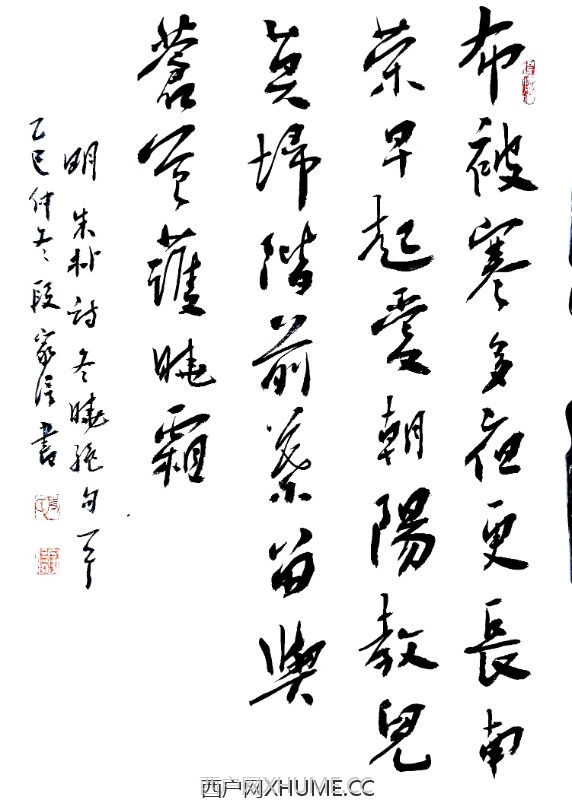 布被寒多夜更長南
荣早起愛朝陽教兒
莫埽階前葉留與
蒼苔護曉霜
明朱朴詩冬曉絕句一首
乙巳仲冬段家信書
西户网XHUME.CC